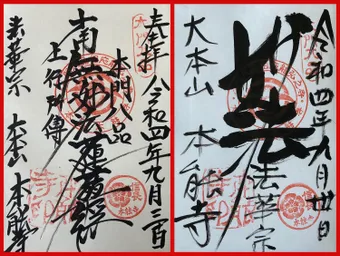 奉拝 令和四年九月三日
本門八品
南無妙法蓮華経
上行所傳
法華宗 大本山 本能寺
令和四年九月廿日
妙法
法華宗
大本山 本能寺